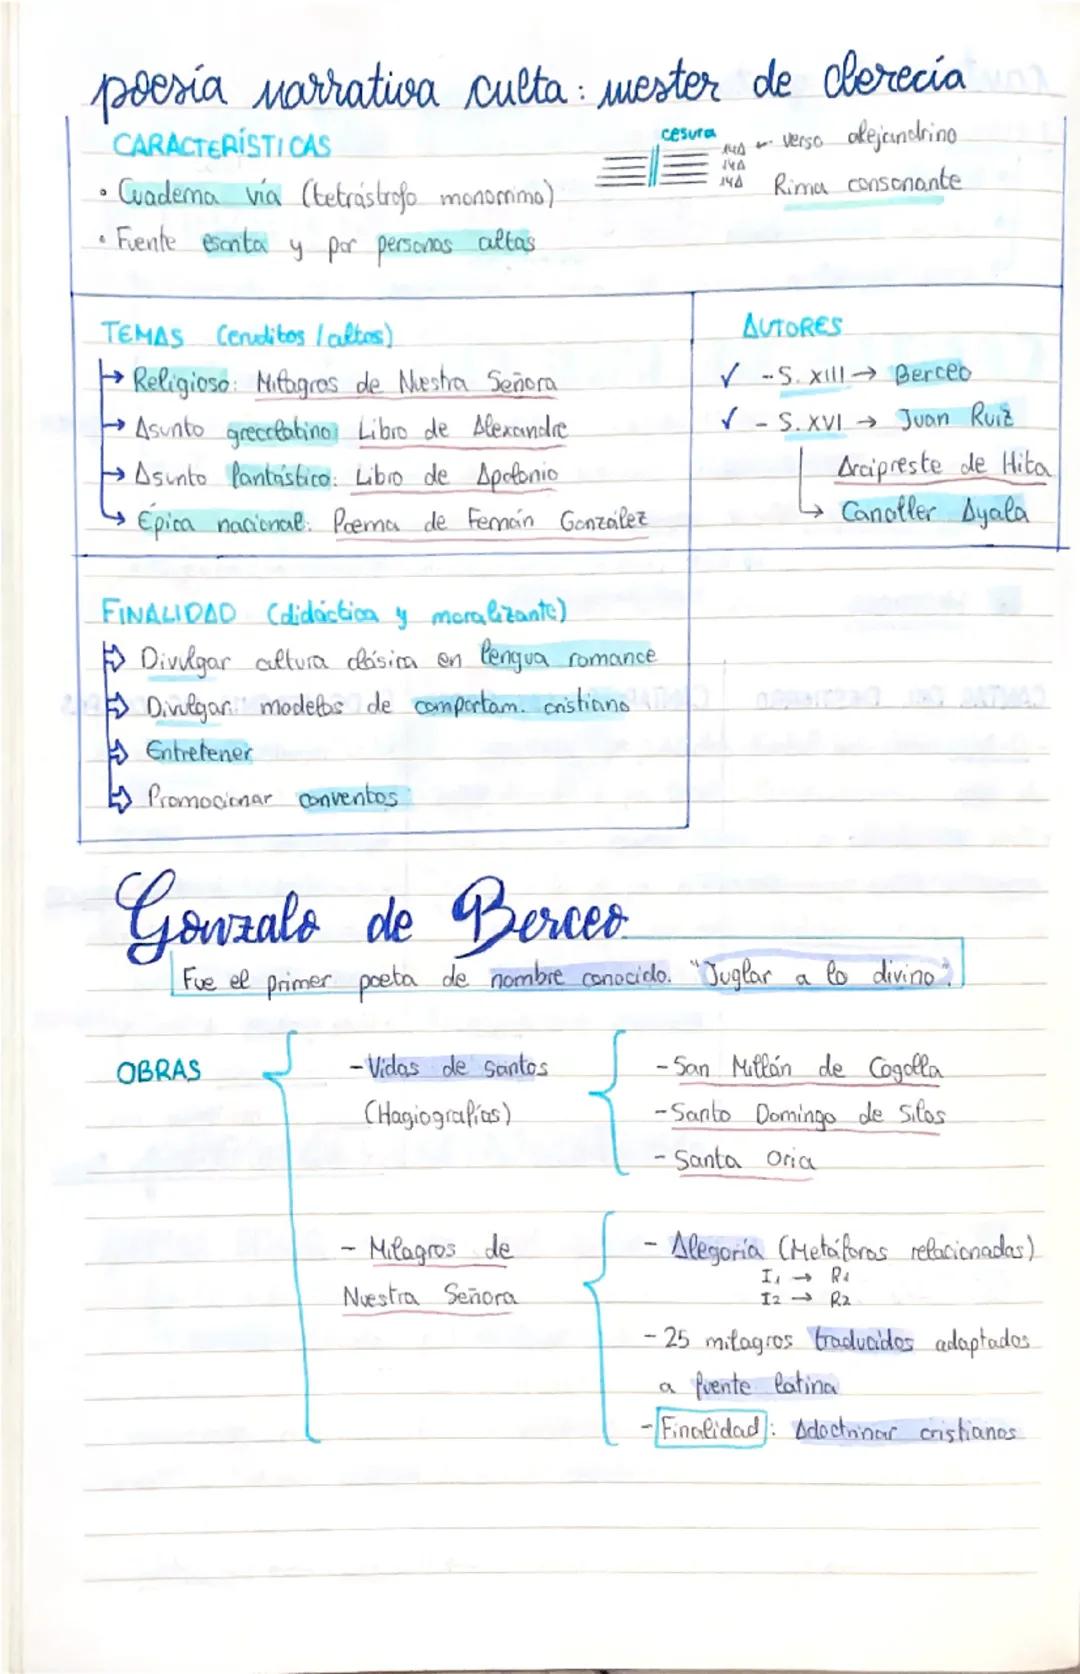 poesía narrativa culta: mester de clerecía
CARACTERÍSTICAS
• Cuaderna vía (tetrástrofo monorrimo)
• Fuente escrita y por personas altas
cesura
14A ← verso alejandrino
14A
14A
Rima consonante
TEMAS (eruditos / altos)
→ Religioso: Milagros de Nuestra Señora
→ Asunto grecolatino: Libro de Alexandre
→ Asunto fantástico: Libro de Apolonio
→ Épica nacional: Poema de Fernán González
AUTORES
✓ - S. XIII → Berceo
✓ - S. XVI → Juan Ruiz
Arcipreste de Hita
→ Canciller Ayala
FINALIDAD (didáctica y moralizante)
⇒ Divulgar cultura clásica en lengua romance
⇒ Divulgar modelos de comportam. cristiano
⇒ Entretener
⇒ Promocionar conventos
Gonzalo de Berceo
Fue el primer poeta de nombre conocido. "Juglar a lo divino".
OBRAS
- Vidas de santos
(Hagiografías)
- San Millán de Cogolla
- Santo Domingo de Silos
- Santa Oria
- Milagros de
Nuestra Señora
- Alegoría (Metáforas relacionadas)
I1 → R1
I2 → R2
- 25 milagros traducidos adaptados
a fuente latina
- Finalidad: Adoctrinar cristianos